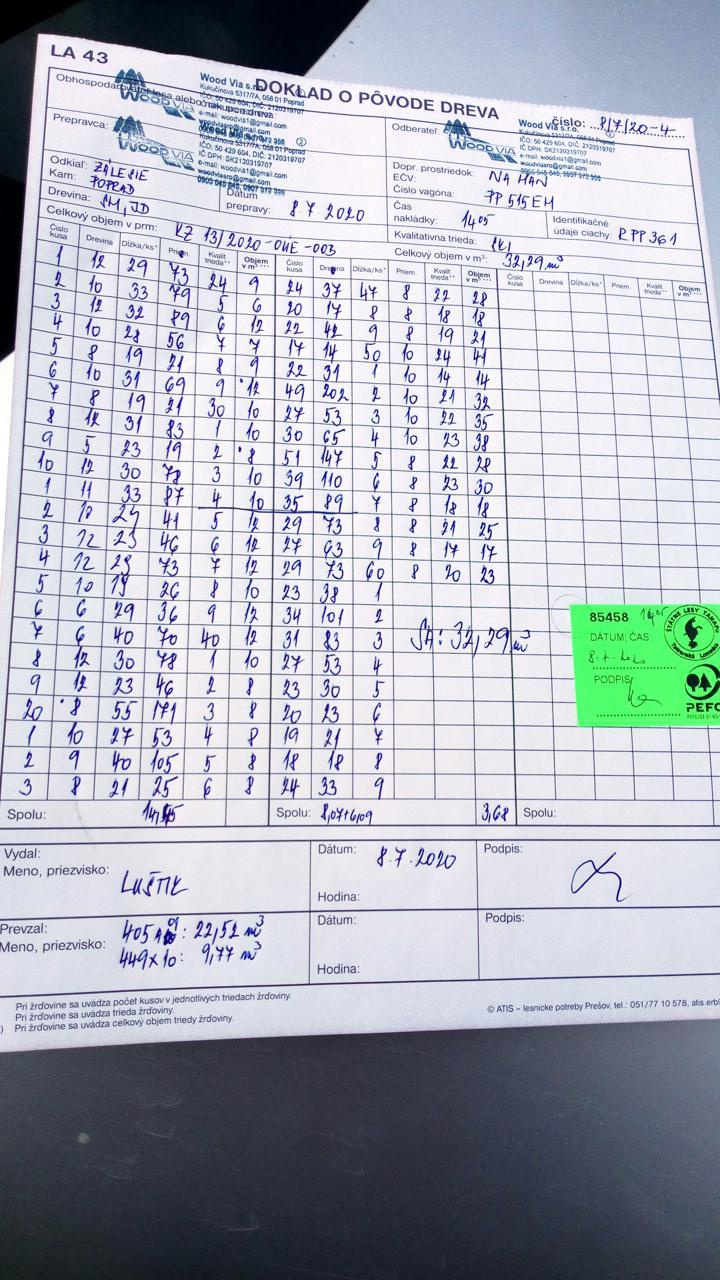 LA 43
DOKLAD O PÔVODE DREVA
číslo: 8/7/20-4
Wood Via s.r.o.
Kukučínova 5317/7A, 058 01 Poprad
IČO: 50 429 604, DIČ: 2120319707
e-mail: woodvia1@gmail.com
WOOD VIA
Prepravca:
Odberateľ:
WOOD VIA
Wood Via s.r.o.
Kukučínova 5317/7A, 058 01 Poprad
IČO: 50 429 604, DIČ: 2120319707
IČ DPH: SK2120319707
e-mail: woodvia1@gmail.com
woodviasro@gmail.com
Odkiaľ: ZÁLESIE
Kam: POPRAD
Dátum prepravy: 8.7.2020
Dopr. prostriedok: NA MAN
EČV: PP 515EM
Číslo vagóna:
Drevina: SM, JD
Čas nakládky: 14 05
Identifikačné údaje ciachy: RPP361
Celkový objem v prm: KZ 13/2020-OHE-003
Kvalitatívna trieda:
Celkový objem v m³: 32,29 m³
Číslo kusa Drevina Dĺžka/ks* Priem. Kvalit. trieda** Objem v m³ *** Číslo kusa Drevina Dĺžka/ks* Priem. Kvalit. trieda** Objem v m³ *** Číslo kusa Drevina Dĺžka/ks* Priem. Kvalit. trieda** Objem v m³ ***
1 12 29 73 24 9 24 37 47 8 22 28
2 10 33 79 5 6 20 17 8 8 18 18
3 12 32 89 6 12 22 42 9 8 19 21
4 10 28 56 7 7 17 14 50 10 24 41
5 8 19 21 8 9 22 31 1 10 14 14
6 10 31 69 9 12 49 202 2 10 21 32
7 8 19 21 30 10 27 53 3 10 22 35
8 12 31 83 1 10 30 65 4 10 23 38
9 5 23 19 2 8 51 147 5 8 22 28
10 12 30 78 3 10 39 110 6 8 23 30
1 11 33 87 4 10 35 89 7 8 18 18
2 41 5 12 29 73 8 8 21 25
3 12 23 46 6 12 27 63 9 8 17 17
4 12 29 73 7 12 29 73 60 8 20 23
5 10 19 26 8 10 23 38 1
6 6 29 36 9 12 34 101 2
7 6 40 70 40 12 31 83 3
SA: 32,29 m³
8 12 30 78 1 10 27 53 4
9 12 23 46 2 8 23 30 5
20 8 55 171 3 8 20 23 6
1 10 27 53 4 8 19 21 7
2 9 40 105 5 8 18 18 8
3 8 21 25 6 8 24 33 9
Spolu: Spolu: 8,07+6,09 3,68 Spolu:
85458 14 05
DÁTUM; ČAS
PODPIS
ŠTÁTNE LESY TANAPu
Tatranská Lomnica
PEFC
Vydal:
Meno, priezvisko: LUŠTIK
Dátum: 8.7.2020
Hodina:
Podpis:
Prevzal:
Meno, priezvisko:
22,52 m³
449x10: 9,77 m³
Dátum:
Hodina:
Podpis:
Pri žrďovine sa uvádza počet kusov v jednotlivých triedach žrďoviny.
Pri žrďovine sa uvádza trieda žrďoviny.
Pri žrďovine sa uvádza celkový objem triedy žrďoviny.
© ATIS – lesnícke potreby Prešov, tel.: 051/77 10 578,